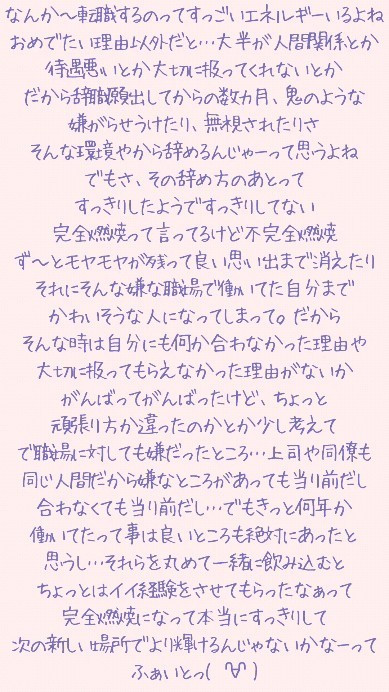 なんか〜転職するのってすっごいエネルギーいるよね
おめでたい理由以外だと…大半が人間関係とか
待遇悪いとか大切に扱ってくれないとか
だから辞職願出してからの数カ月、鬼のような
嫌がらせうけたり、無視されたりさ
そんな環境やから辞めるんじゃーって思うよね
でもさ、その辞め方のあとって
すっきりしたようですっきりしてない
完全燃焼って言ってるけど不完全燃焼
ず〜とモヤモヤが残って良い思い出まで消えたり
それにそんな嫌な職場で働いてた自分まで
かわいそうな人になってしまって。だから
そんな時は自分にも何か合わなかった理由や
大切に扱ってもらえなかった理由がないか
がんばってがんばったけど、ちょっと
頑張り方が違ったのかとか少し考えて
で職場に対しても嫌だったところ…上司や同僚も
同じ人間だから嫌なところがあっても当り前だし
合わなくても当り前だし…でもきっと何年か
働いてたって事は良いところも絶対にあったと
思うし…それらを丸めて一緒に飲み込むと
ちょっとはイイ経験をさせてもらったなぁって
完全燃焼になって本当にすっきりして
次の新しい場所でより輝けるんじゃないかなーって
ふぁいとっ( ˙∀˙ )